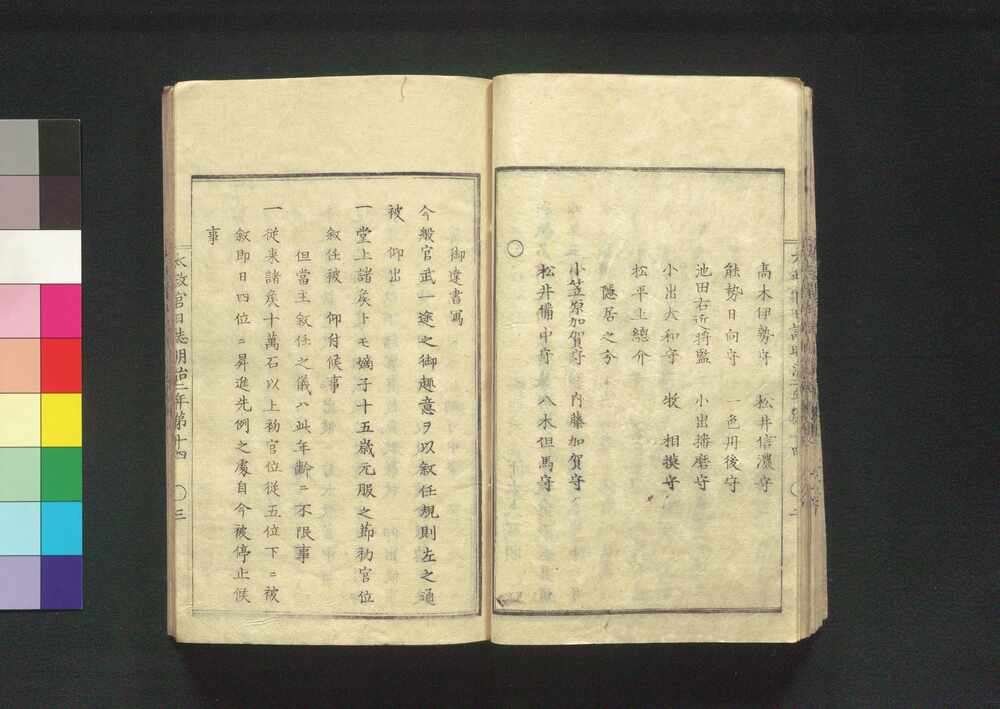 高木伊勢守　松井信濃守
能勢日向守　一色丹後守
池田右近将監　小出播磨守
小出大和守　牧　相摸守
松平上總介
隠居之分
小笠原加賀守　内藤加賀守
松井備中守　八木但馬守
御達書寫
今般官武一途之御趣意ヲ以敘任規則左之通
被　仰出
一堂上諸矦トモ嫡子十五歳元服之節初官位
敘任被　仰付候事
但當主敘任之儀ハ此年齢ニ不限事
一従来諸矦十萬石以上初官位従五位下ニ被
敘即日四位ニ昇進先例之處自今被停止候
事
太政官日誌明治二年第十四　〇三